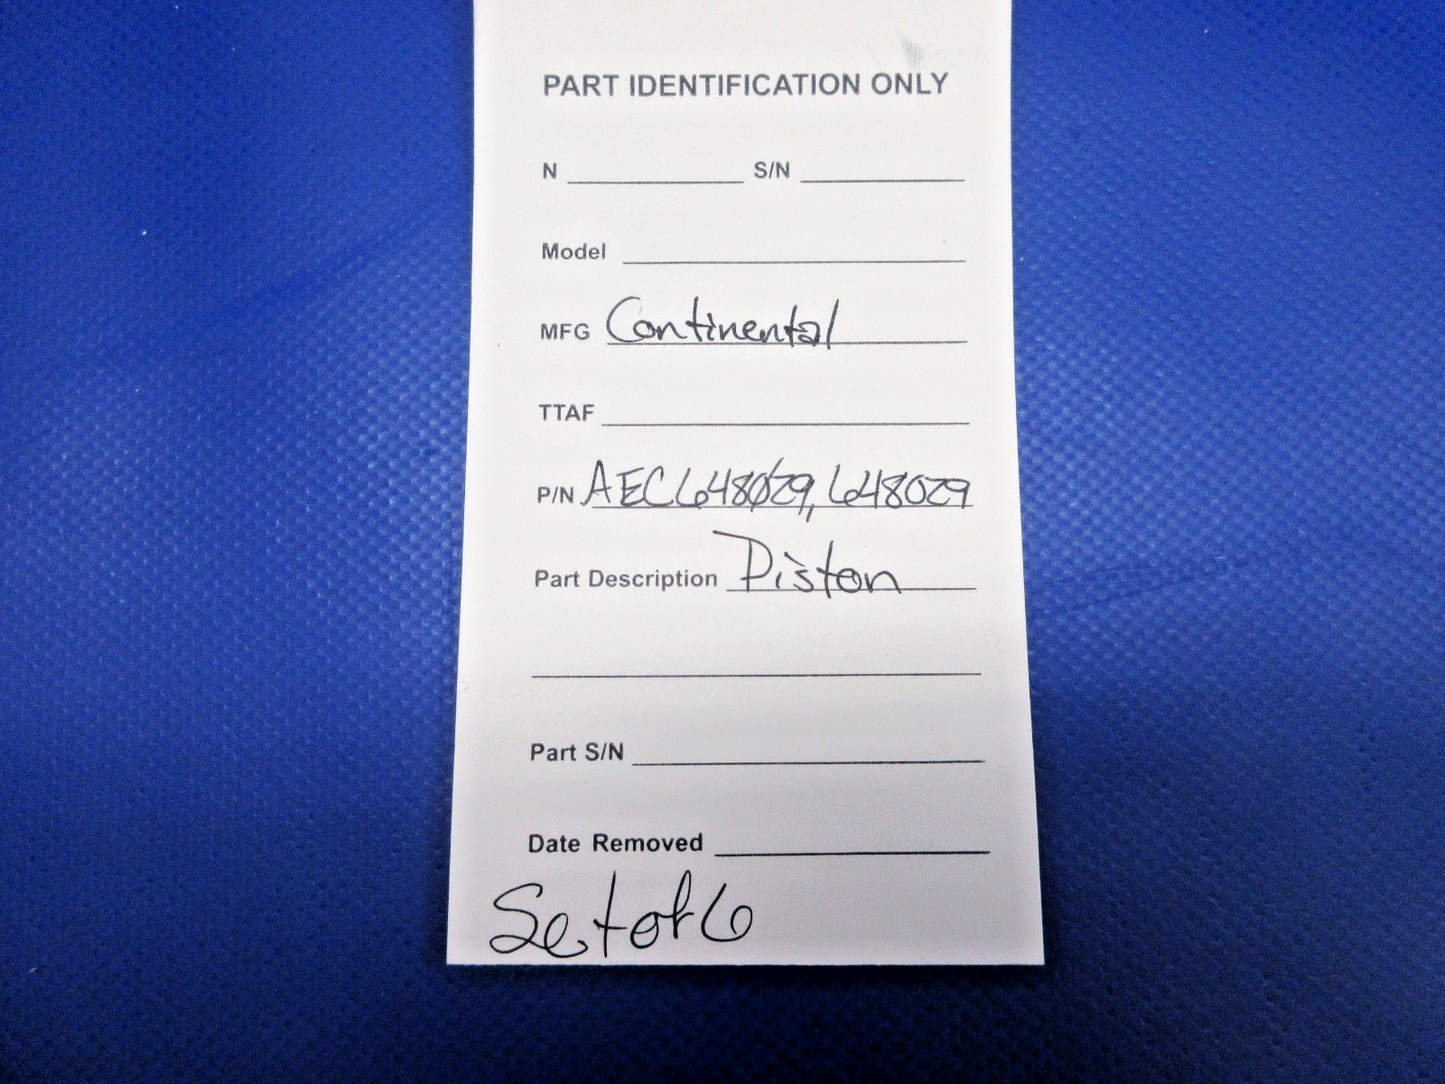 PART IDENTIFICATION ONLY
N S/N
Model
MFG Continental
TTAF
P/N AEC648029, 648029
Part Description Piston
Part S/N
Date Removed
Set of 6